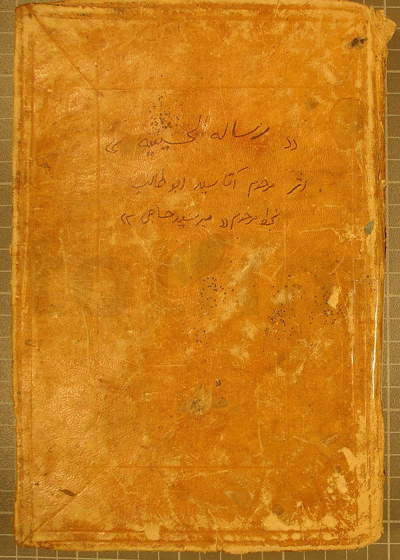 «رساله الحسینیه»
اثر مرحوم آقا سید ابوطالب
بخط مرحوم «میرسید حاجی»